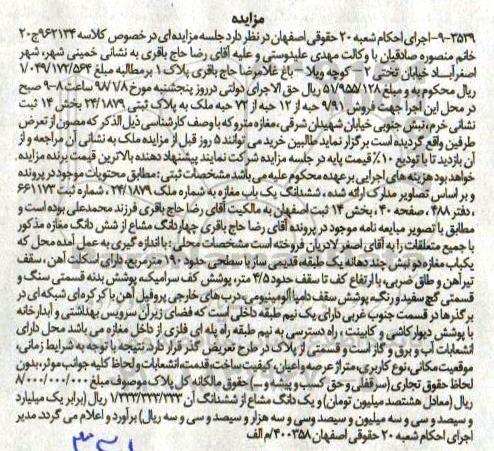 مزایده
۹-۳۵۲۹- اجرای احکام شعبه ۲۰ حقوقی اصفهان در نظر دارد جلسه مزایده ای در خصوص کلاسه ۹۶۲۱۳۴ج۲۰
خانم منصوره صادقیان با وکالت مهدی علیدوستی و علیه آقای رضا حاج باقری به نشانی خمینی شهر، شهر
اصغرآباد خیابان تختی کوچه ویلا باغ غلامرضا حاج باقری پلاک ۱ بر مطالبه مبلغ ۱/۰۴۹/۱۷۲/۵۶۴
ریال محکوم به و مبلغ ۵۱/۹۵۵/۱۲۸ ریال حق الاجرای دولتی در روز پنجشنبه مورخ ۹۸/۷/۸ ساعت ۸-۹ صبح
در محل این اجرا جهت فروش ۹/۹۱ حبه از ۱۲ حبه از ۷۲ حبه ملک به پلاک ثبتی ۲۴/۱۸۷۹ بخش ۱۴ ثبت
نشانی خرم، نبش جنوبی خیابان شهیدان شرقی، مغازه مترو که با وصف کارشناسی ذیل الذکر که مصون از تعرض
طرفین واقع گردیده است برگزار نماید طالبین خرید می توانند ۵ روز قبل از مزایده ملک به نشانی آن مراجعه و از
آن بازدید تا با تودیع ۱۰٪ قیمت پایه در جلسه مزایده شرکت نمایند پیشنهاد دهنده بالاترین قیمت برنده مزایده
خواهد بود هزینه های اجرایی بر عهده محکوم علیه می باشد مشخصات ثبتی: مطابق محتویات موجود در پرونده
و بر اساس تصاویر مدارک ارائه شده، ششدانگ یک باب مغازه به شماره ملک ۲۴/۱۸۷۹، شماره ثبت ۶۶۱۱۷۳
، دفتر ۴۸۸، صفحه ۴۰، بخش ۱۴ ثبت اصفهان به مالکیت آقای رضا حاج باقری فرزند محمدعلی بوده است و
مطابق با تصویر مبایعه نامه موجود در پرونده آقای رضا حاج باقری چهاردانگ مشاع از شش دانگ مغازه مذکور
با جمیع متعلقات را به آقای اصغر لادریان فروخته است مشخصات محلی: با اندازه گیری به عمل آمده محل که
یکباب مغازه دو نبش چند دهانه یک طبقه، قدیمی ساز با سطحی حدود ۱۹۰ مترمربع، دارای اسکلت آهن، سقف
تیرآهن و طاق ضربی، با ارتفاع کف تا سقف حدود ۴/۵ متر، پوشش کف سرامیک، پوشش بدنه قسمتی سنگ و
قسمتی گچ سفید و رنگ، پوشش سقف دامپا آلومینیومی، درب های خارجی پروفیل آهن با کرکره ای شبکه ای در
بر گذرها در قسمت جنوب غربی دارای یک نیم طبقه داخلی است که فضای زیر آن سرویس بهداشتی و آبدارخانه
با پوشش دیوار کاشی و کابینت، راه دسترسی به نیم طبقه راه پله ای فلزی از داخل مغازه می باشد محل دارای
انشعابات آب و برق و گاز است و قسمتی از پلاک در طرح تعریض گذر قرار دارد نتیجه: با توجه به شرایط زمانی،
موقعیت مکانی، نوع کاربری، متراژ عرصه و اعیان، کیفیت ساخت، قدمت، انشعابات و لحاظ کلیه جوانب موثر، بدون
لحاظ حقوق تجاری (سرقفلی و حق کسب و پیشه و ...) حقوق مالکانه کل پلاک موصوف مبلغ ۸/۰۰۰/۰۰۰/۰۰۰
ریال (معادل هشتصد میلیون تومان) و یک دانگ مشاع از ششدانگ آن ۱/۳۳۳/۳۳۳/۳۳۳ ریال (برابر یک میلیارد
و سیصد و سی و سه میلیون و سیصد وسی و سه هزار و سیصد و سی و سه ریال) برآورد و اعلام می گردد. مدیر
اجرای احکام شعبه ۲۰ حقوقی اصفهان ۴۰۰۳۵۸/م الف